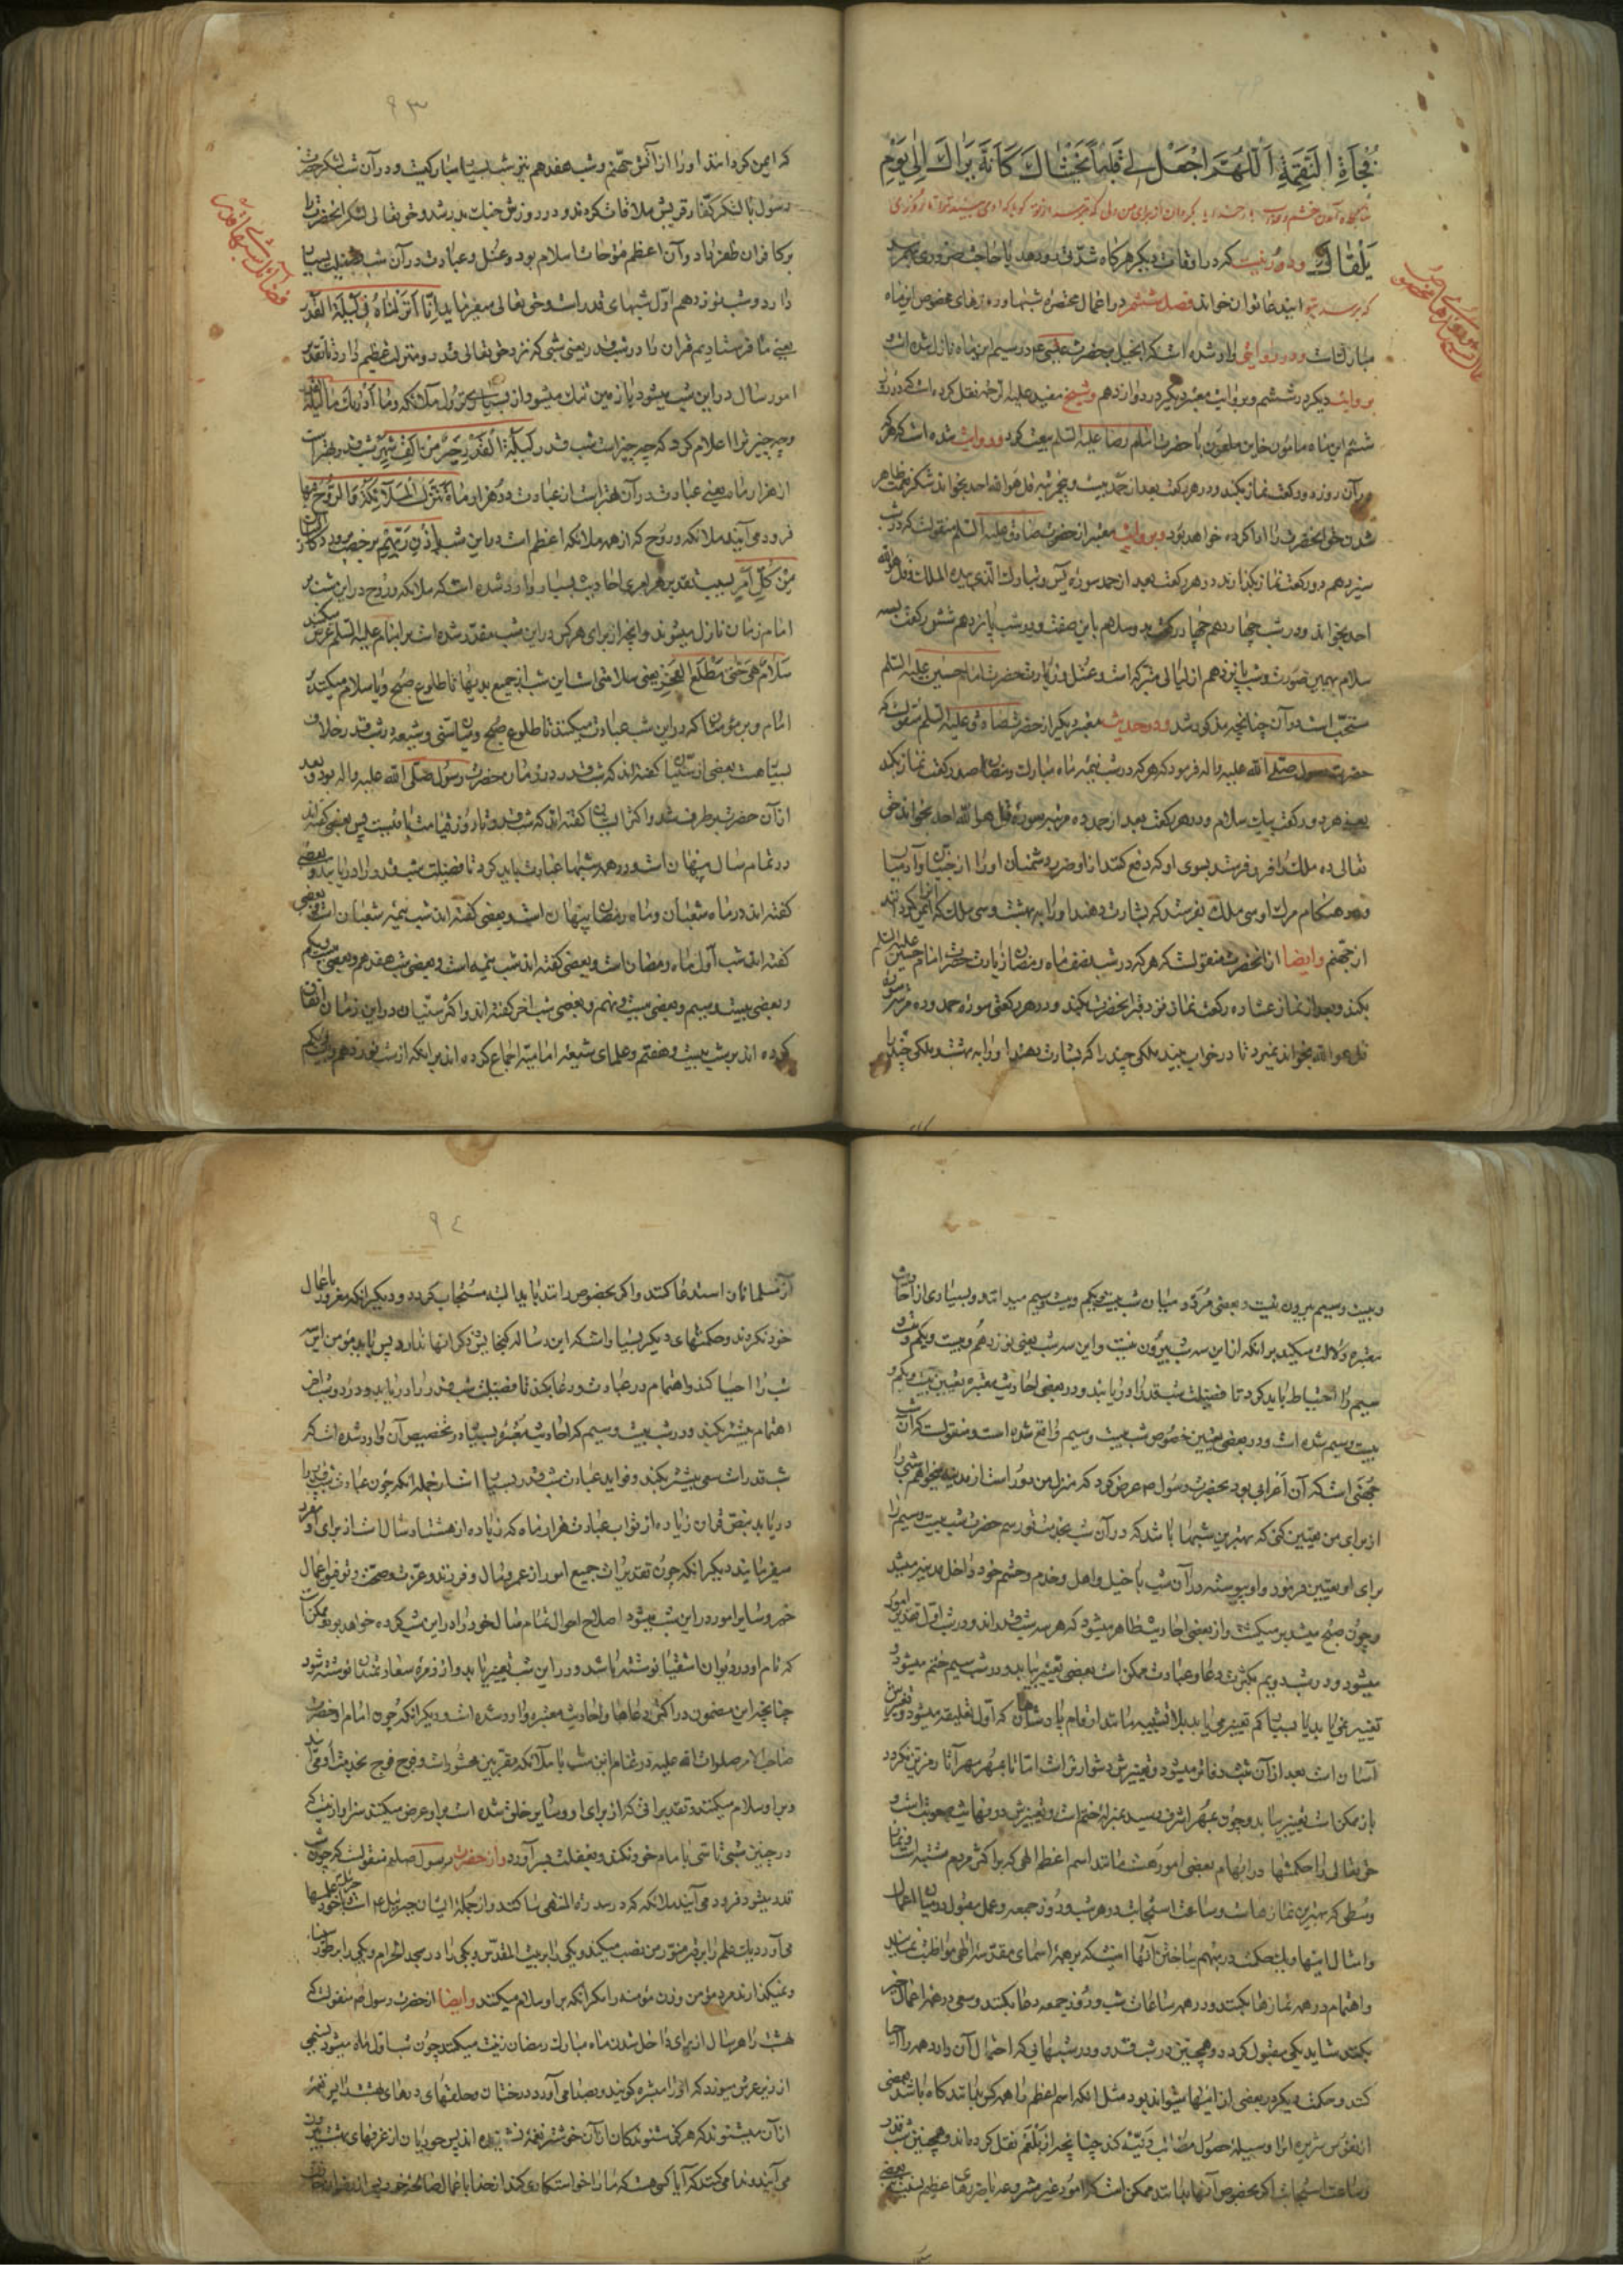 فُجَاةِ النَّقِمَةِ اَللّٰهُمَّ اجْعَلْنِي كَاَنِّي اَرَاكَ اِلٰى يَوْمِ
اَلْقَاكَ
که در اوقات دیگر هرگاه شدتی رو دهد یا حاجت ضروری بهم رسد
این دعا توان خواند فصل ششم در اعمال مختصره شبها و روزهای مخصوص این ماه
مبارکست و در روایتی وارد شده است که انجیل بحضرت عیسی در سیم این ماه نازل شده است و
بروایت دیگر در ششم و بروایت معتبر دیگر در دوازدهم و شیخ مفید علیه الرحمه نقل کرده است که در روز
ششم این ماه مامون خاین ملعون با حضرت امام رضا علیه السلم بیعت کرد و روایت شده است که هر که
در آن روز دو رکعت نماز بکند و در هر رکعت بعد از حمد بیست و پنج مرتبه قل هو الله احد بخواند شکر نعمت ظاهر
شدن حق آنحضرت را ادا کرده خواهد بود و بروایت معتبر از حضرت صادق علیه السلم منقولست که در شب
سیزدهم دو رکعت نماز بگذارند در هر رکعت بعد از حمد سوره یس و تبارک الذی بیده الملک و قل هو الله
احد بخواند و در شب چهاردهم چهار رکعت بدو سلام باین صفت و در شب پانزدهم شش رکعت بسه
سلام بهمین صورت و شب پانزدهم از لیالی متبرکه است و غسل و زیارت حضرت امام حسین علیه السلم
سنتست در آن چنانچه مذکور شد و در حدیث معتبر دیگر از حضرت صادق علیه السلم منقولست که
حضرت رسول صلی الله علیه و اله فرمود که هر که در شب نیمه ماه مبارک رمضان صد رکعت نماز بکند
یعنی هر دو رکعت بیک سلام و در هر رکعت بعد از حمد ده مرتبه سوره قل هو الله احد بخواند حق
تعالی ده ملک را فرو فرستد بسوی او که دفع کنند از او ضرر دشمنان او را از جنیان و آدمیان
و در هنگام مرگ او سی ملک بفرستد که بشارت دهند او را به بهشت و سی ملک که ایمن گردانند او را
از جهنم وایضا از آنحضرت منقولست که هر که در شب نصف ماه رمضان زیارت حضرت امام حسین علیه السلم
بکند و بعد از نماز عشا ده رکعت نماز نزد قبر آنحضرت بکند و در هر رکعتی سوره حمد و ده مرتبه سوره
قل هو الله بخواند نمیرد تا در خواب ببیند ملکی چند را که بشارت دهند او را به بهشت و ملکی چند را
اعمال شبها و روزهای مخصوص
۹۳
که ایمن گردانند او را از آتش جهنم و شب هفدهم نیز شب بسیار مبارکیست و در آن شب لشکر حضرت
رسول با لشکر کفار قریش ملاقات کردند و در روزش جنک بدر شد و حق تعالی لشکر آنحضرت را
بر کافران ظفر داد و آن اعظم فتوحات اسلام بود و غسل و عبادت در آن شب فضیلت بسیار
دارد و شب نوزدهم اول شبهای قدر است و حق تعالی میفرماید اِنّا اَنْزَلْناهُ فِی لَیْلَةِ الْقَدْرِ
یعنی ما فرستادیم قران را در شب قدر یعنی شبی که نزد حق تعالی قدر و منزلت عظیم دارد یا تقدیر
امور سال در این شب میشود یا زمین تنک میشود از بسیاری نزول ملائکه وَمَا اَدْرٰیكَ مَا لَیْلَةُ القدر
و چه چیز ترا اعلام کرد که چه چیز است شب قدر لَیْلَةُ الْقَدْرِ خَیْرٌ مِنْ اَلْفِ شَهْرٍ شب قدر بهتر است
از هزار ماه یعنی عبادت در آن بهتر است از عبادت در هزار ماه تَنَزَّلُ الْمَلآئِکَةُ وَالرُّوحُ فِیها
فرود می آیند ملائکه و روح که از همه ملائکه اعظم است در این شب بِاِذْنِ رَبِّهِمْ برخصت پروردکار ایشان
مِنْ کُلِّ اَمْرٍ بسبب تقدیر هر امری احادیث بسیار وارد شده است که ملائکه و روح در این شب بر
امام زمان نازل میشوند و آنچه از برای هر کس در این شب مقدر شده است بر امام علیه السلم عرض میکنند
سَلامٌ هِیَ حَتّٰی مَطْلَعِ الْفَجْرِ یعنی سلامتی است این شب از جمیع بدیها تا طلوع صبح و یا سلام میکنند بر
امام و بر مؤمنان که در این شب عبادت میکنند تا طلوع صبح و میان سنی و شیعه در شب قدر خلاف
بسیار هست بعضی از سنیان گفته اند که شب قدر در زمان حضرت رسول صلی الله علیه واله بود و بعد
از آن حضرت برطرف شد و اکثر ایشان گفته اند که شب قدر تا روز قیامت باقیست پس بعضی گفته اند
در تمام سال پنهان است و در همه شبها عبادت باید کرد تا فضیلت شب قدر را دریابند و بعضی
گفته اند در ماه شعبان و ماه رمضان پنهان است و بعضی گفته اند شب نیمه شعبان است و بعضی
گفته اند شب اول ماه رمضان است و بعضی گفته اند شب نیمه است و بعضی شب هفدهم و بعضی بیست و یکم
و بعضی بیست و سیم و بعضی بیست و نهم و بعضی شب آخر گفته اند و اکثر سنیان در این زمان اتفاق
کرده اند بر شب بیست و هفتم و علمای شیعه امامیه اجماع کرده اند بر اینکه از شب نوزدهم و بیست و یکم
فضائل شبهای قدر
و بیست و سیم بیرون نیست و بعضی مردد میان شب بیست و یکم و بیست و سیم میدانند و بسیاری از احادیث
معتبره دلالت میکند بر آنکه از این سه شب بیرون نیست و این سه شب یعنی نوزدهم و بیست و یکم و بیست و
سیم را احتیاط باید کرد تا فضیلت شب قدر را دریابند و در بعضی احادیث معتبره تعیین بیست و یکم و
بیست و سیم شده است و در بعضی تعیین خصوص شب بیست و سیم واقع شده است و منقولست که آن شب
جهنی است که آن اعرابی بود بحضرت رسول ص عرض کرد که منزل من دور است از مدینه میخواهم شبی را
از برای من تعیین کنی که بهترین شبها باشد که در آن شب بخدمت تو رسم حضرت شب بیست و سیم را
برای او تعیین فرمود و او پیوسته در آن شب با خیل و اهل و خدم و حشم خود داخل مدینه میشد
و چون صبح میشد بر میگشت و از بعضی احادیث ظاهر میشود که هر سه شب قدراند و در شب اول تقدیر امور
میشود و در شب دویم بکثرت دعا و عبادت ممکن است بعضی تغییر بیابد و در شب سیم ختم میشود و
تغییر نمی یابد یا بسیار کم تغییر می یابد بلا تشبیه مانند ارقام پادشاهان که اول تعلیقه میشود و تغییرش
آسان است بعد از آن ثبت دفاتر میشود و تغییرش دشوارتر است اما تا بمهر مهر آثار مزین نگردد
باز ممکن است تغییر بیابد و چون بمهر اشرف رسید بمنزله ختم است و تغییرش در نهایت صعوبت است و
حق تعالی را حکمتها در ابهام بعضی امور هست مانند اسم اعظم الهی که بر اکثر مردم مشتبه است و نماز
وسطی که بهترین نمازهاست و ساعت استجابت در هر شب و روز جمعه و عمل مقبول در میان اعمال
و امثال اینها و یک حکمت در مبهم ساختن آنها اینست که بر همه اسمای مقدس الهی مواظبت نمایند
و اهتمام در همه نمازها بکنند و در همه ساعات شب و روز جمعه دعا بکنند و سعی در همه اعمال خیر
بکنند شاید یکی مقبول گردد و همچنین در شب قدر و در شبهائی که احتمال آن دارد همه را احیا
کنند و حکمت دیگر در بعضی از اینها میتواند بود مثل آنکه اسم اعظم را همه کس ندانند گاه باشد بعضی
از نفوس شریره آنرا وسیله حصول مطالب دنیه کند چنانچه از بلعم نقل کرده اند و همچنین شب قدر
و ساعت استجابت اگر بخصوص آنها بدانند ممکن است که امور غیر مشروعه یا ضررهای عظیم نسبت ببعضی
۹٤
از مسلمانان استدعا کنند و اگر بخصوص دانند باید البته مستجاب گردد و دیگر آنکه مغرور باعمال
خود نگردند و حکمتهای دیگر بسیار است که این رساله گنجایش ذکر آنها ندارد پس باید مؤمن این سه
شب را احیا کند و اهتمام در عبادت و دعا بکند تا فضیلت شب قدر را دریابد و در دو شب آخر
اهتمام بیشتر بکند و در شب بیست و سیم که احادیث معتبره بسیار در تخصیص آن وارد شده است که
شب قدر است سعی بیشتر بکند و فواید عبادت شب قدر بسیار است از جمله آنکه چون عبادت شب قدر را
دریابد بنص قران زیاده از ثواب عبادت هزار ماه که زیاده از هشتاد سال است از برای او مقرر
میفرمایند دیگر آنکه چون تقدیرات جمیع امور از عمر و مال و فرزند و عزت و صحت و توفیق اعمال
خیر و سایر امور در این شب میشود اصلاح احوال تمام سال خود را در این شب کرده خواهد بود و ممکن است
که نام او در دیوان اشقیا نوشته باشد و در این شب تغییر یابد و از زمره سعادتمندان نوشته شود
چنانچه این مضمون در اکثر دعاها و احادیث معتبره وارد شده است و دیگر آنکه چون امام او حضرت
صاحب الامر صلوات الله علیه در تمام این شب با ملائکه مقربین محشور است و فوج فوج بخدمت او می آیند
و بر او سلام میکنند و تقدیراتی که از برای او و سایر خلق شده است بر او عرض میکنند سزاوار نیست که
در چنین شبی تاسی بامام خود نکند و بغفلت بسر آورد و از حضرت رسول صلعم منقولست که چون شب
قدر میشود فرود می آیند ملائکه که در سدرة المنتهی ساکنند و از جمله ایشان جبرئیل ع است و با خود علمها
می آورد یک علم را بر قبر منور من نصب میکند و یکی را بر بیت المقدس و یکی را در مسجد الحرام و یکی را بر طور سینا
و نمیگذارند مرد مؤمن و زن مؤمنه را مگر آنکه بر او سلام میکنند وایضا از حضرت رسول ص منقولست که
بهشت را هر سال از برای داخل شدن ماه مبارک رمضان زینت میکنند چون شب اول ماه میشود نسیمی
از زیر عرش میوزد که آنرا مثیره گویند و بصدا می آورد درختان و حلقهای درهای بهشت را پس نغمه
از آن میشنوند که هرگز شنوندگان از آن خوشتر نغمه نشنیده اند پس حوریان از غرفهای بهشت بیرون
می آیند و ندا میکنند که آیا کسی هست که ما را خواستگاری کند از خدا